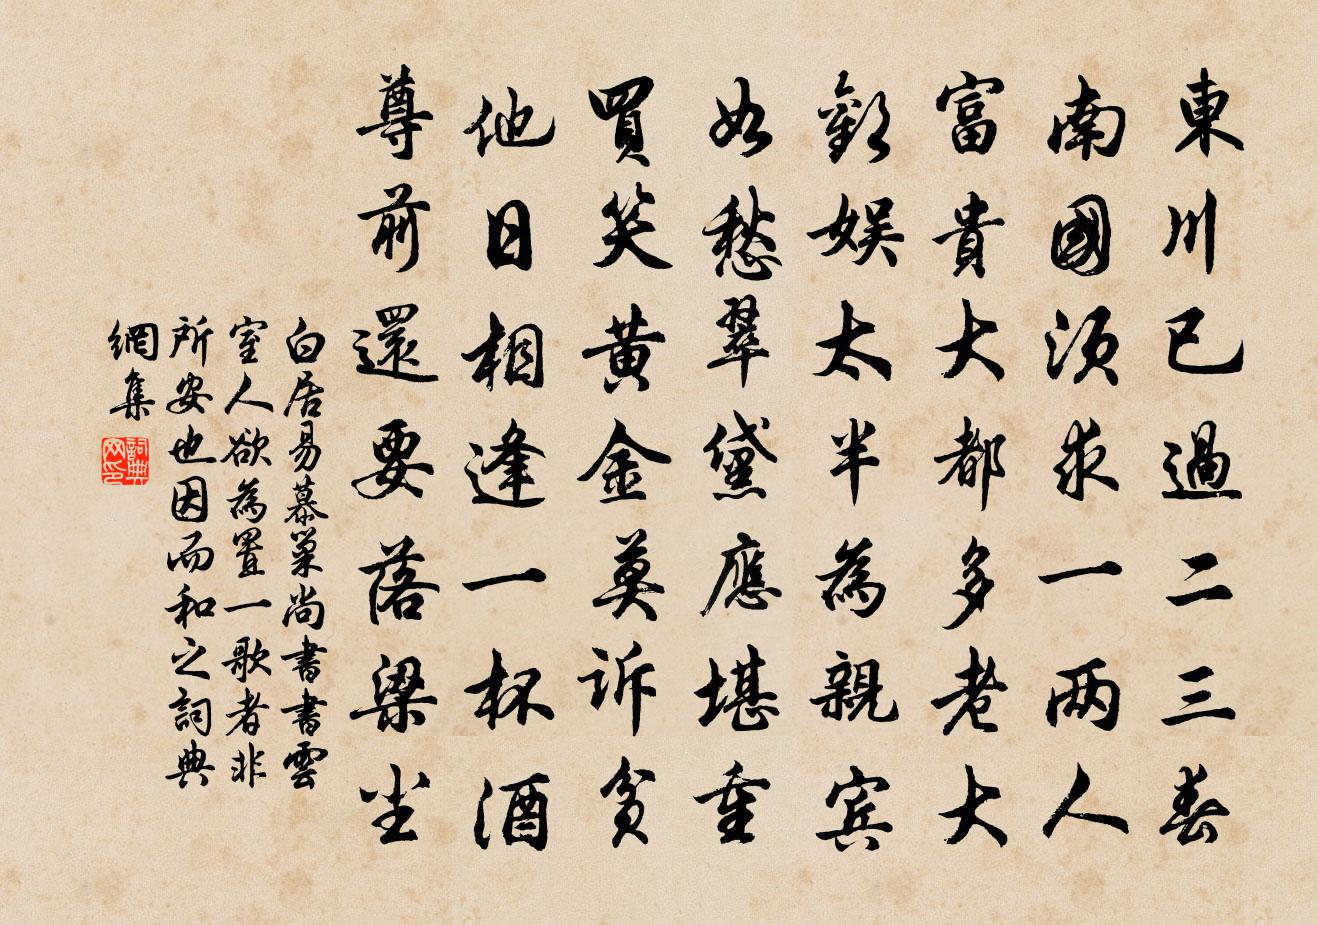 東川已過二三春
南國須求一兩人
富貴大都多老大
歡娛太半為親賓
如愁翠黛應堪重
買笑黃金莫訴貧
他日相逢一杯酒
尊前還要落梁尘
白居易慕巢尚書書雲
室人欲為置一歌者非
所安也因而和之詞典
網集
詞典網印